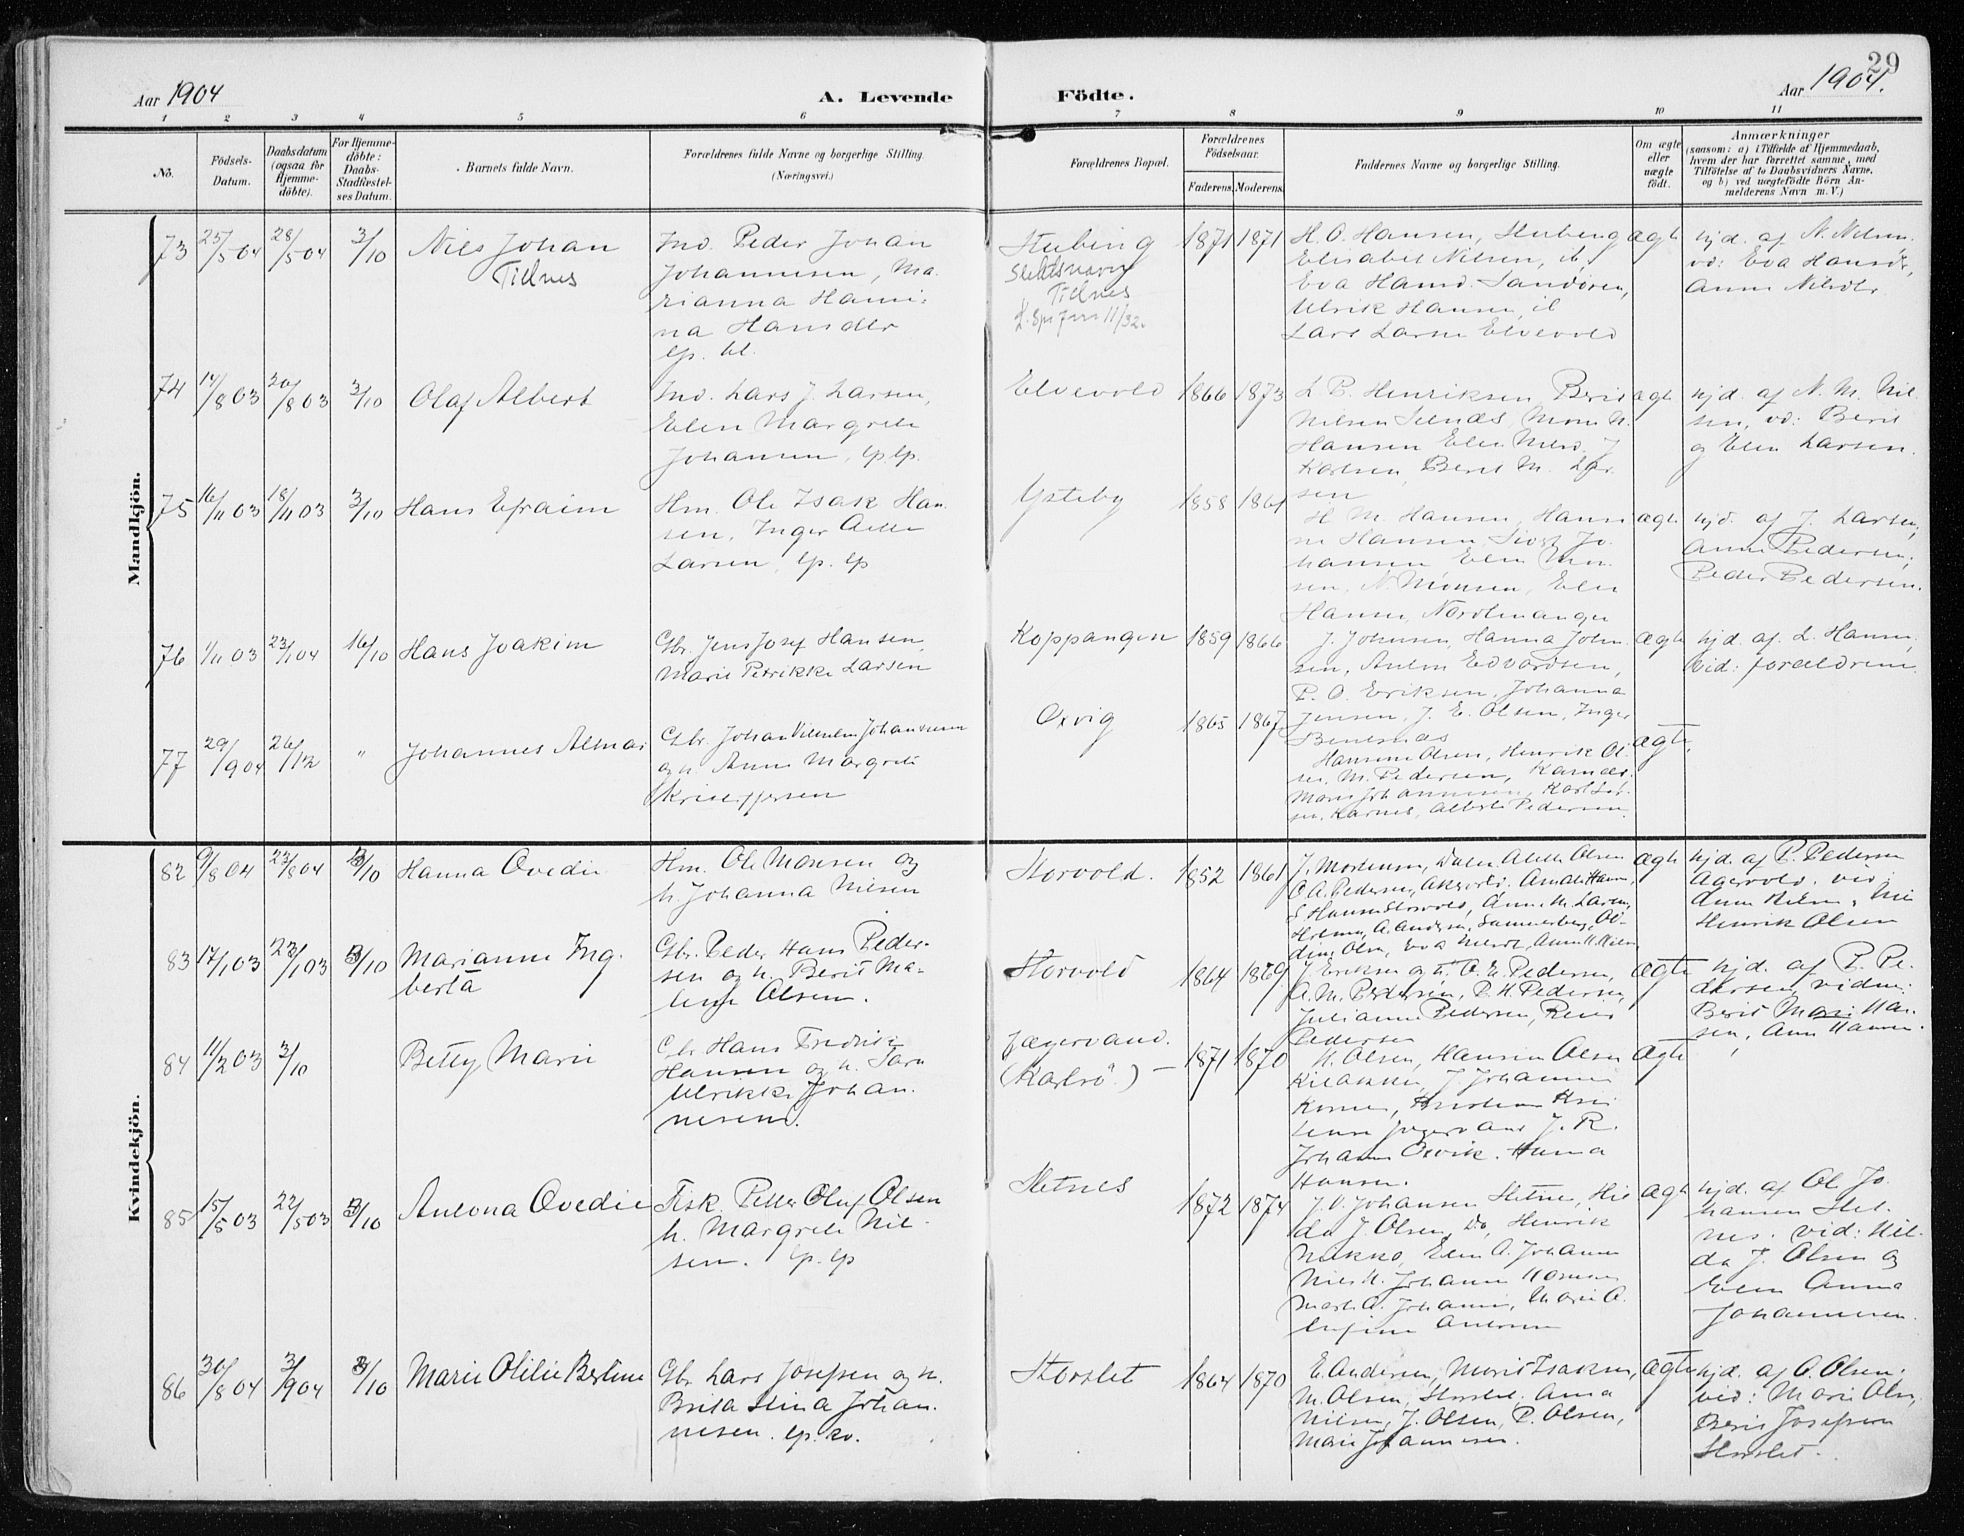 Aar 1904
A. Levende
Födte.
Aar 1904.
29
1 2 3 4 5 6 7 8 9 10 11
No.
Födsels-
Datum.
Daabsdatum
(ogsaa for
Hjemme-
döbte).
For Hjemme-
döbte:
Daabs-
Stadfæstel-
ses Datum.
Barnets fulde Navn.
Forældrenes fulde Navne og borgerlige Stilling.
(Næringsvei.)
Forældrenes Bopæl.
Forældrenes
Födselsaar.
Faderens. Moderens.
Faddernes Navne og borgerlige Stilling.
Om ægte
eller
uægte
födt.
Anmærkninger
(saasom: a) i Tilfælde af Hjemmedaab,
hvem der har forrettet samme, med
Tilföielse af to Daabsvidners Navne,
og b) ved uægtefödte Börn An-
melderens Navn m. V.)
Mandkjön.
73 25/5 04 28/5 04 3/10 Nils Johan
Tillnes
Ind. Peder Johan
Johannesen, Ma-
rianna Hami-
na Hansdtr
lp. bl.
Stubing
Slektsnavn
Tillnes
11/32.
1871 1871
H. O. Hansen, Stubeng
Elisabet Nilsen, ib.
Eva Hansd. Sandören,
Ulrik Hansen, ib
Lars Larsen Elvevold
ægte
hjd. af N. Nilsen
vd: Eva Hansdr,
Anne Nilsdtr
74 17/8 03 20/8 03 3/10 Olaf Albert
Ind. Lars J. Larsen,
Elen Margrete
Johansen, lp. lp.
Elvevold
1866 1873
L. P. Henriksen Berit
Nilsen Selnæs, Mons N.
Hansen Elen Nilsd, J
Karlsen, Berit M. Lar-
sen
ægte
hjd. af N. M. Nil-
sen, vd: Berit
og Elen Larsen.
75 16/11 03 18/11 03 3/10 Hans Efraim
Hm. Ole Isak Han-
sen, Inger
Larsen, lp. lp
Ysteby
1858 1861
H. M. Hansen, Hansi
ne Hansen Jo-
hansen Elen Mon-
sen, N. Monsen, Elen
Hansen Nordmannger
ægte
hjd. af J. Larsen,
Anne Pedersen,
Peder Pedersen.
76 1/11 03 23/1 04 16/10 Hans Joakim
Gbr. Jens Josef Hansen,
Marit Petrikke Larsen
Koppangen
1859 1866
J. Johnsen, Hanna John-
sen, Anton Edvardsen,
P. O. Eriksen, Johanna
Jensen, J. E. Olsen, Inger
Benesnæs
ægte
hjd. af L. Hansen,
vid: forældrene
77 29/9 04 26/12 " Johannes Almar
Gbr. Johan Vilhelm Johannesen
og h. Anne Margrete
Kristoffersen
Oxvig
1865 1867
Hansine Olsen, Henrik Ol-
sen, M. Pedersen, Karnes.
Marie Johannesen, Karl Lar-
sen. Karnes, Alberte Pedersen.
ægte.
Kvindekjön.
82 9/8 04 23/8 04 3/10 Hanna Ovedie
Hm. Ole Monsen og
h. Johanna Nilsen
Storvold.
1852 1861
J. Mortensen, Dalen Olsen
O A. Pedersen, Akervold. Hansen,
Hansen Storvold, Anne M. Larsen,
A. Andersen, Sommerberg, Ol-
dine Olsen, Eva Anne M.
ægte
hjd. af P. Pedersen
Agervold. vid:
Anne Nilsen,
Henrik Olsen
83 17/1 03 23/1 03 3/10 Marianne Ing.
berta
Gbr. Peder Hans Peder-
sen og h. Berit Ma-
lene Olsen.
Storvold
1864 1869
J. Eriksen og h. O. E. Pedersen,
A. M. Pedersen, P. H. Pedersen
Julianne Pedersen,
Pedersen
ægte
hjd. af P. Pe-
dersen, vidn:
Berit Marie Han-
sen, Ann Hansen.
84 11/2 03 3/10 Betty Marie
Gbr Hans Fredrik
Hansen og h. Sara
Ulrikke Johan-
nesen.
Jægervand.
(Karlsö.) —
1871 1870
Olsen, Hansine Olsen
J Johannes
Jægervand J. R.
Johansen Oxvik. Hanna
Hansen.
ægte
85 15/5 03 22/5 03 3/10 Antona Ovedie
Fisk. Peder Oluf Olsen
h. Margrete Nil-
sen. lp. lp
Sletnes
1872 1874
J. V. Johansen Sletnes, Hil-
da J. Olsen, Do, Henrik
Elen A. Johansen
Nils N. Johansen
Johansen, Marie A.
ægte
hjd. af Ol Jo
hansen Slet-
nes. vid: Hil-
da J. Olsen og
Elen Anna
Johannesen.
86 30/8 04 3/9 04 3/10 Marie Otilie Bertine
Gbr Lars Josefsen og h.
Brita Stina Johan-
nesen. lp. kv.
Storslet
1864 1870
E. Andersen, Marit Isaksen,
M. Olsen, Storslet. Anna
Nilsen, J. Olsen, P. Olsen,
Marie Johannesen.
ægte
hjd. af O. Olsen;
vid: Marie Olsn,
Berit Josefsen
Storslet.